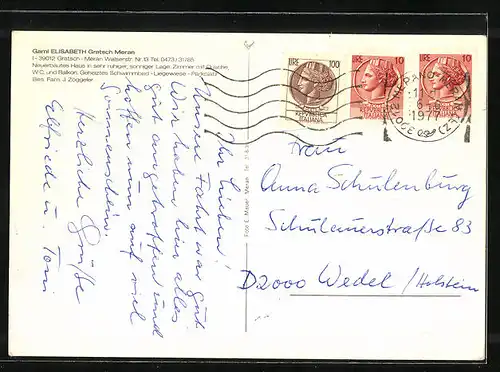 Garni ELISABETH Gratsch Meran
I - 39012 Gratsch - Meran Walserstr. Nr. 13 Tel. 0473/31285
Neuerbautes Haus in sehr ruhiger, sonniger Lage. Zimmer mit Dusche,
WC, und Balkon. Geheiztes Schwimmbad - Liegewiese - Parkplatz
Bes. Fam. J. Zoggeler
Ihr Lieben!
Unsere Fahrt war gut
Wir haben hier alles
gut angetroffen und
hoffen nun auf viel
Sonnenschein.
Herzliche Grüße
Elfriede u. Toni
LIRE 100
REPVBBLICA
ITALIANA
LIRE 10
REPVBBLICA
ITALIANA
10
ITALIANA
MERANO
1977
(BZ)
Frau
Anna Schulenburg
Schulauerstraße 83
D2000 Wedel/Holstein